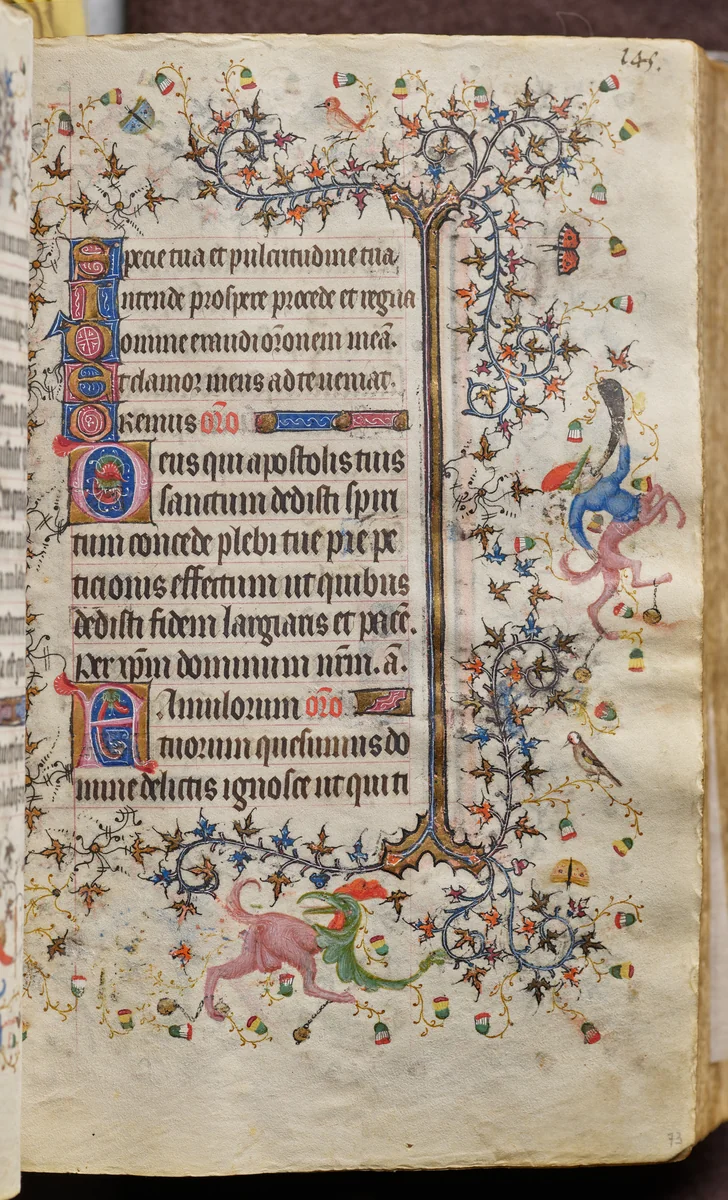 145.
Specie tua et pulcritudine tua
Intende prospere procede et regna
Domine exaudi or̄onem meā.
Et clamor meus ad te veniat.
Oremus or̄o
Deus qui apostolis tuis
sanctum dedisti spiri
tum concede plebi tue pie pe
ticionis effectum ut quibus
dedisti fidem largiaris et pacē.
Per xp̄m dominum nr̄m. a.
Famulorum or̄o
tuorum quesumus do
mine delictis ignosce ut qui ti
73